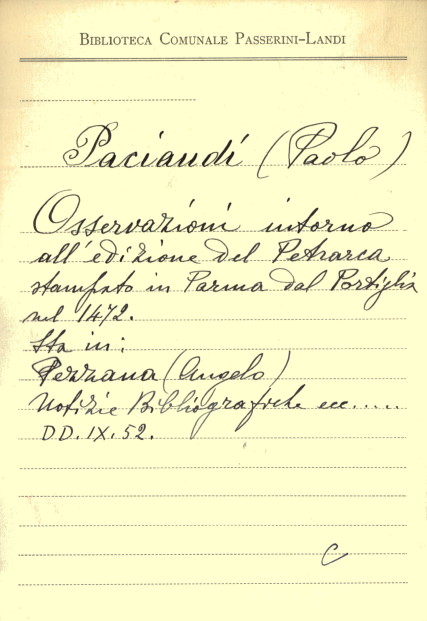 BIBLIOTECA COMUNALE PASSERINI-LANDI
Paciaudi (Paolo)
Osservazioni intorno
all'edizione del Petrarca
stampato in Parma dal Portiglia
nel 1472.
Sta in:
Pezzana (Angelo)
Notizie Bibliografiche ecc.....
DD. IX. 52.
C